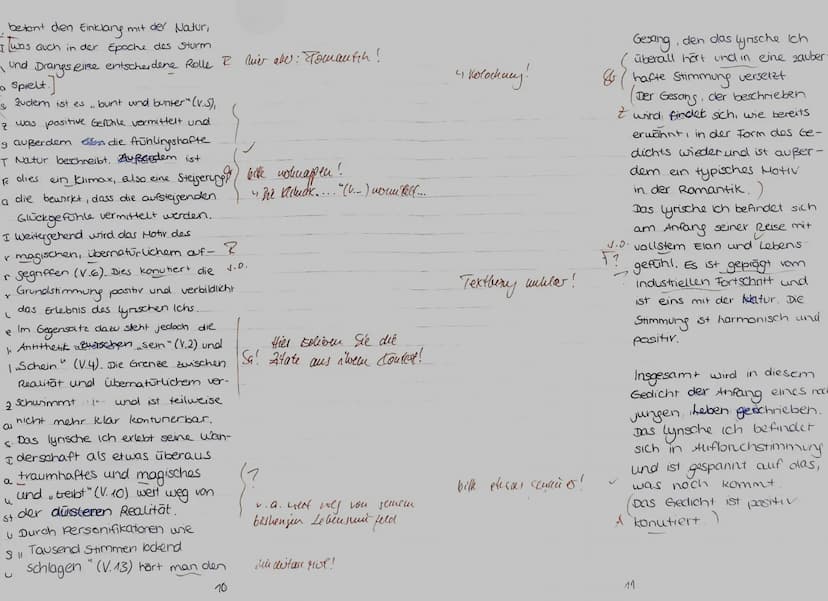 betont den Einklang mit der Natur,
[was auch in der Epoche des Sturm
und Drangs eine entscheidene Rolle
spielt.]
Zudem ist es „bunt und bunter" (V.5),
was positive Gefühle vermittelt und
außerdem die frühlingshafte
Natur beschreibt. Außerdem ist
dies ein Klimax, also eine Steigerung,
die bewirkt, dass die aufsteigenden
Glücksgefühle vermittelt werden.
Weitergehend wird das Motiv des
magischen, übernatürlichem auf-
gegriffen (V.6). Dies konutiert die
Grundstimmung positiv und verbildlicht
das Erlebnis des lyrischen Ichs.
Im Gegensatz dazu steht jedoch die
Antithetik zwischen „sein" (V.2) und
„Schein" (V.4). Die Grenze zwischen
Realität und übernatürlichem ver-
schwimmt und ist teilweise
nicht mehr klar konturierbar.
Das lyrische Ich erlebt seine Wan-
derschaft als etwas überaus
traumhaftes und magisches
und „treibt" (V.10) weit weg von
der düsteren Realität.
Durch Personifikationen wie
„Tausend Stimmen lockend
schlagen" (V.13) hört man den
10
R hier aber: Romantik!
bitte
R
s.o.
Hier lösen Sie die
Zitate aus ihrem Kontext!
?
v.a. weit weg von seinem
bisherigen Lebensumfeld
↳ Vertiefung!
Textbezug unklar!
bitte etwas genauer!
Gesang, den das lyrische Ich
überall hört und in eine zauber
hafte Stimmung versetzt
(Der Gesang, der beschrieben
wird, findet sich, wie bereits
erwähnt, in der Form des Ge-
dichts wieder und ist außer-
dem ein typisches Motiv
in der Romantik.)
Das lyrische Ich befindet sich
am Anfang seiner Reise mit
vollstem Elan und Lebens
gefühl. Es ist geprägt vom
industriellen Fortschritt und
ist eins mit der Natur. Die
Stimmung ist harmonisch und
positiv.
s.o.
?
Insgesamt wird in diesem
Gedicht der Anfang eines noch
jungen Leben geschrieben.
Das lyrische Ich befindet
sich in Aufbruchstimmung
und ist gespannt auf das,
was noch kommt.
(Das Gedicht ist positiv
konutiert.)
11